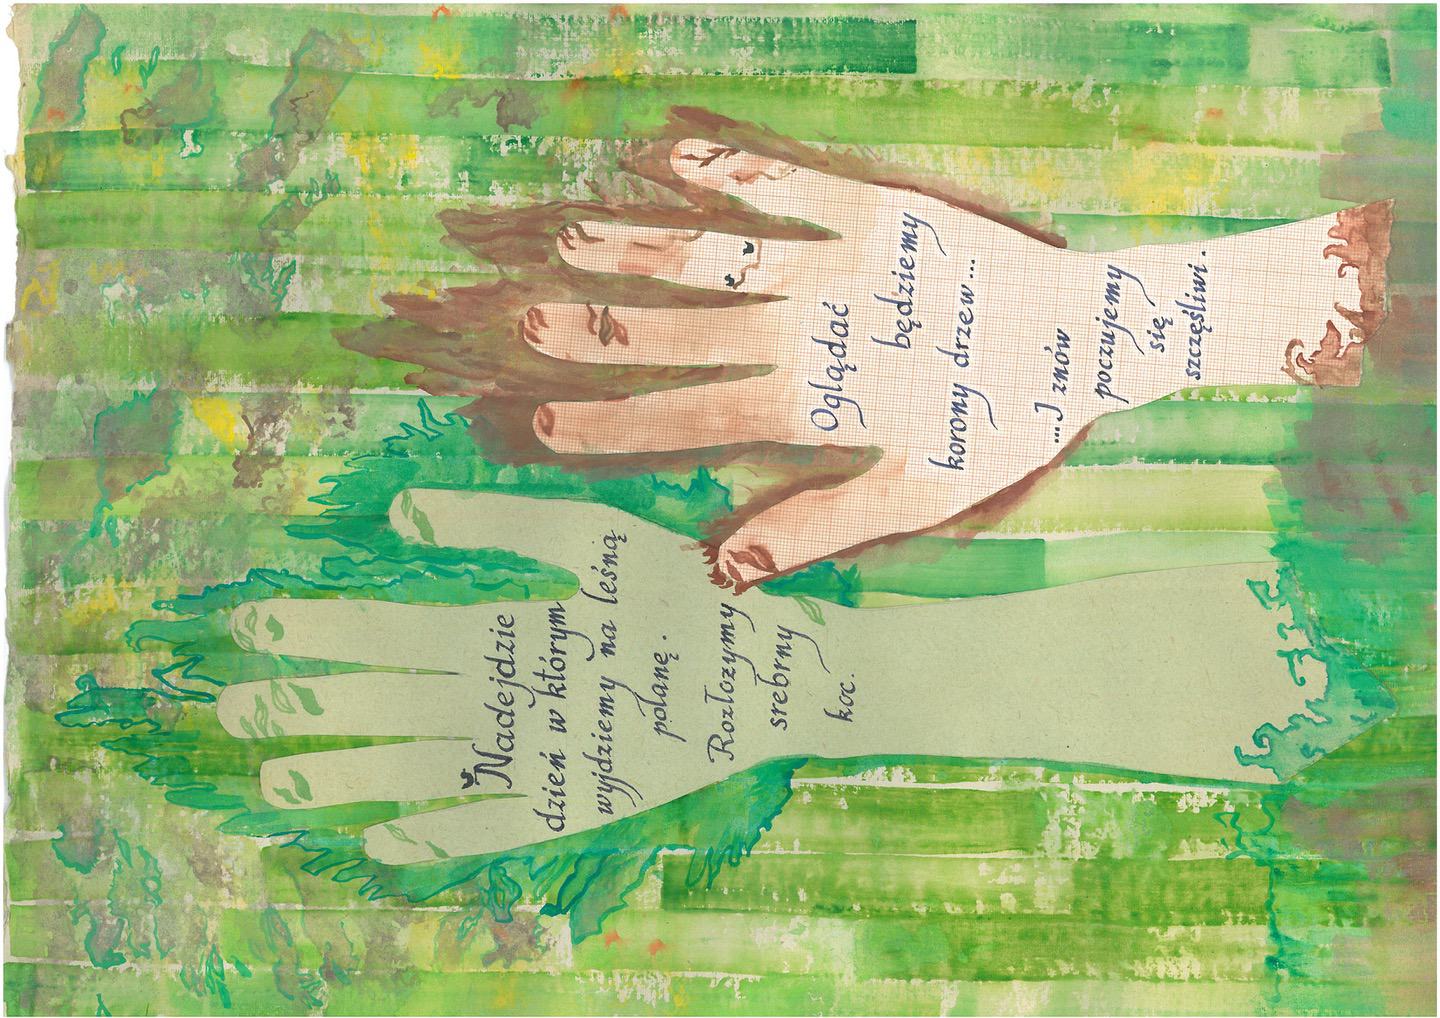 Nadejdzie
dzień w którym
wyjdziemy na leśną
polanę.
Rozłożymy
srebrny
koc.
Oglądać
będziemy
korony drzew...
...I znów
poczujemy
się
szczęśliwi.